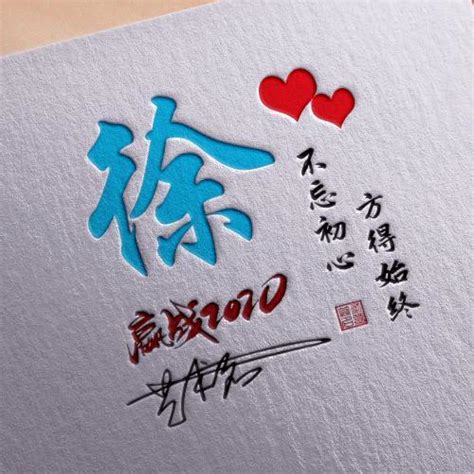 徐
不忘初心
方得始终
赢战2020